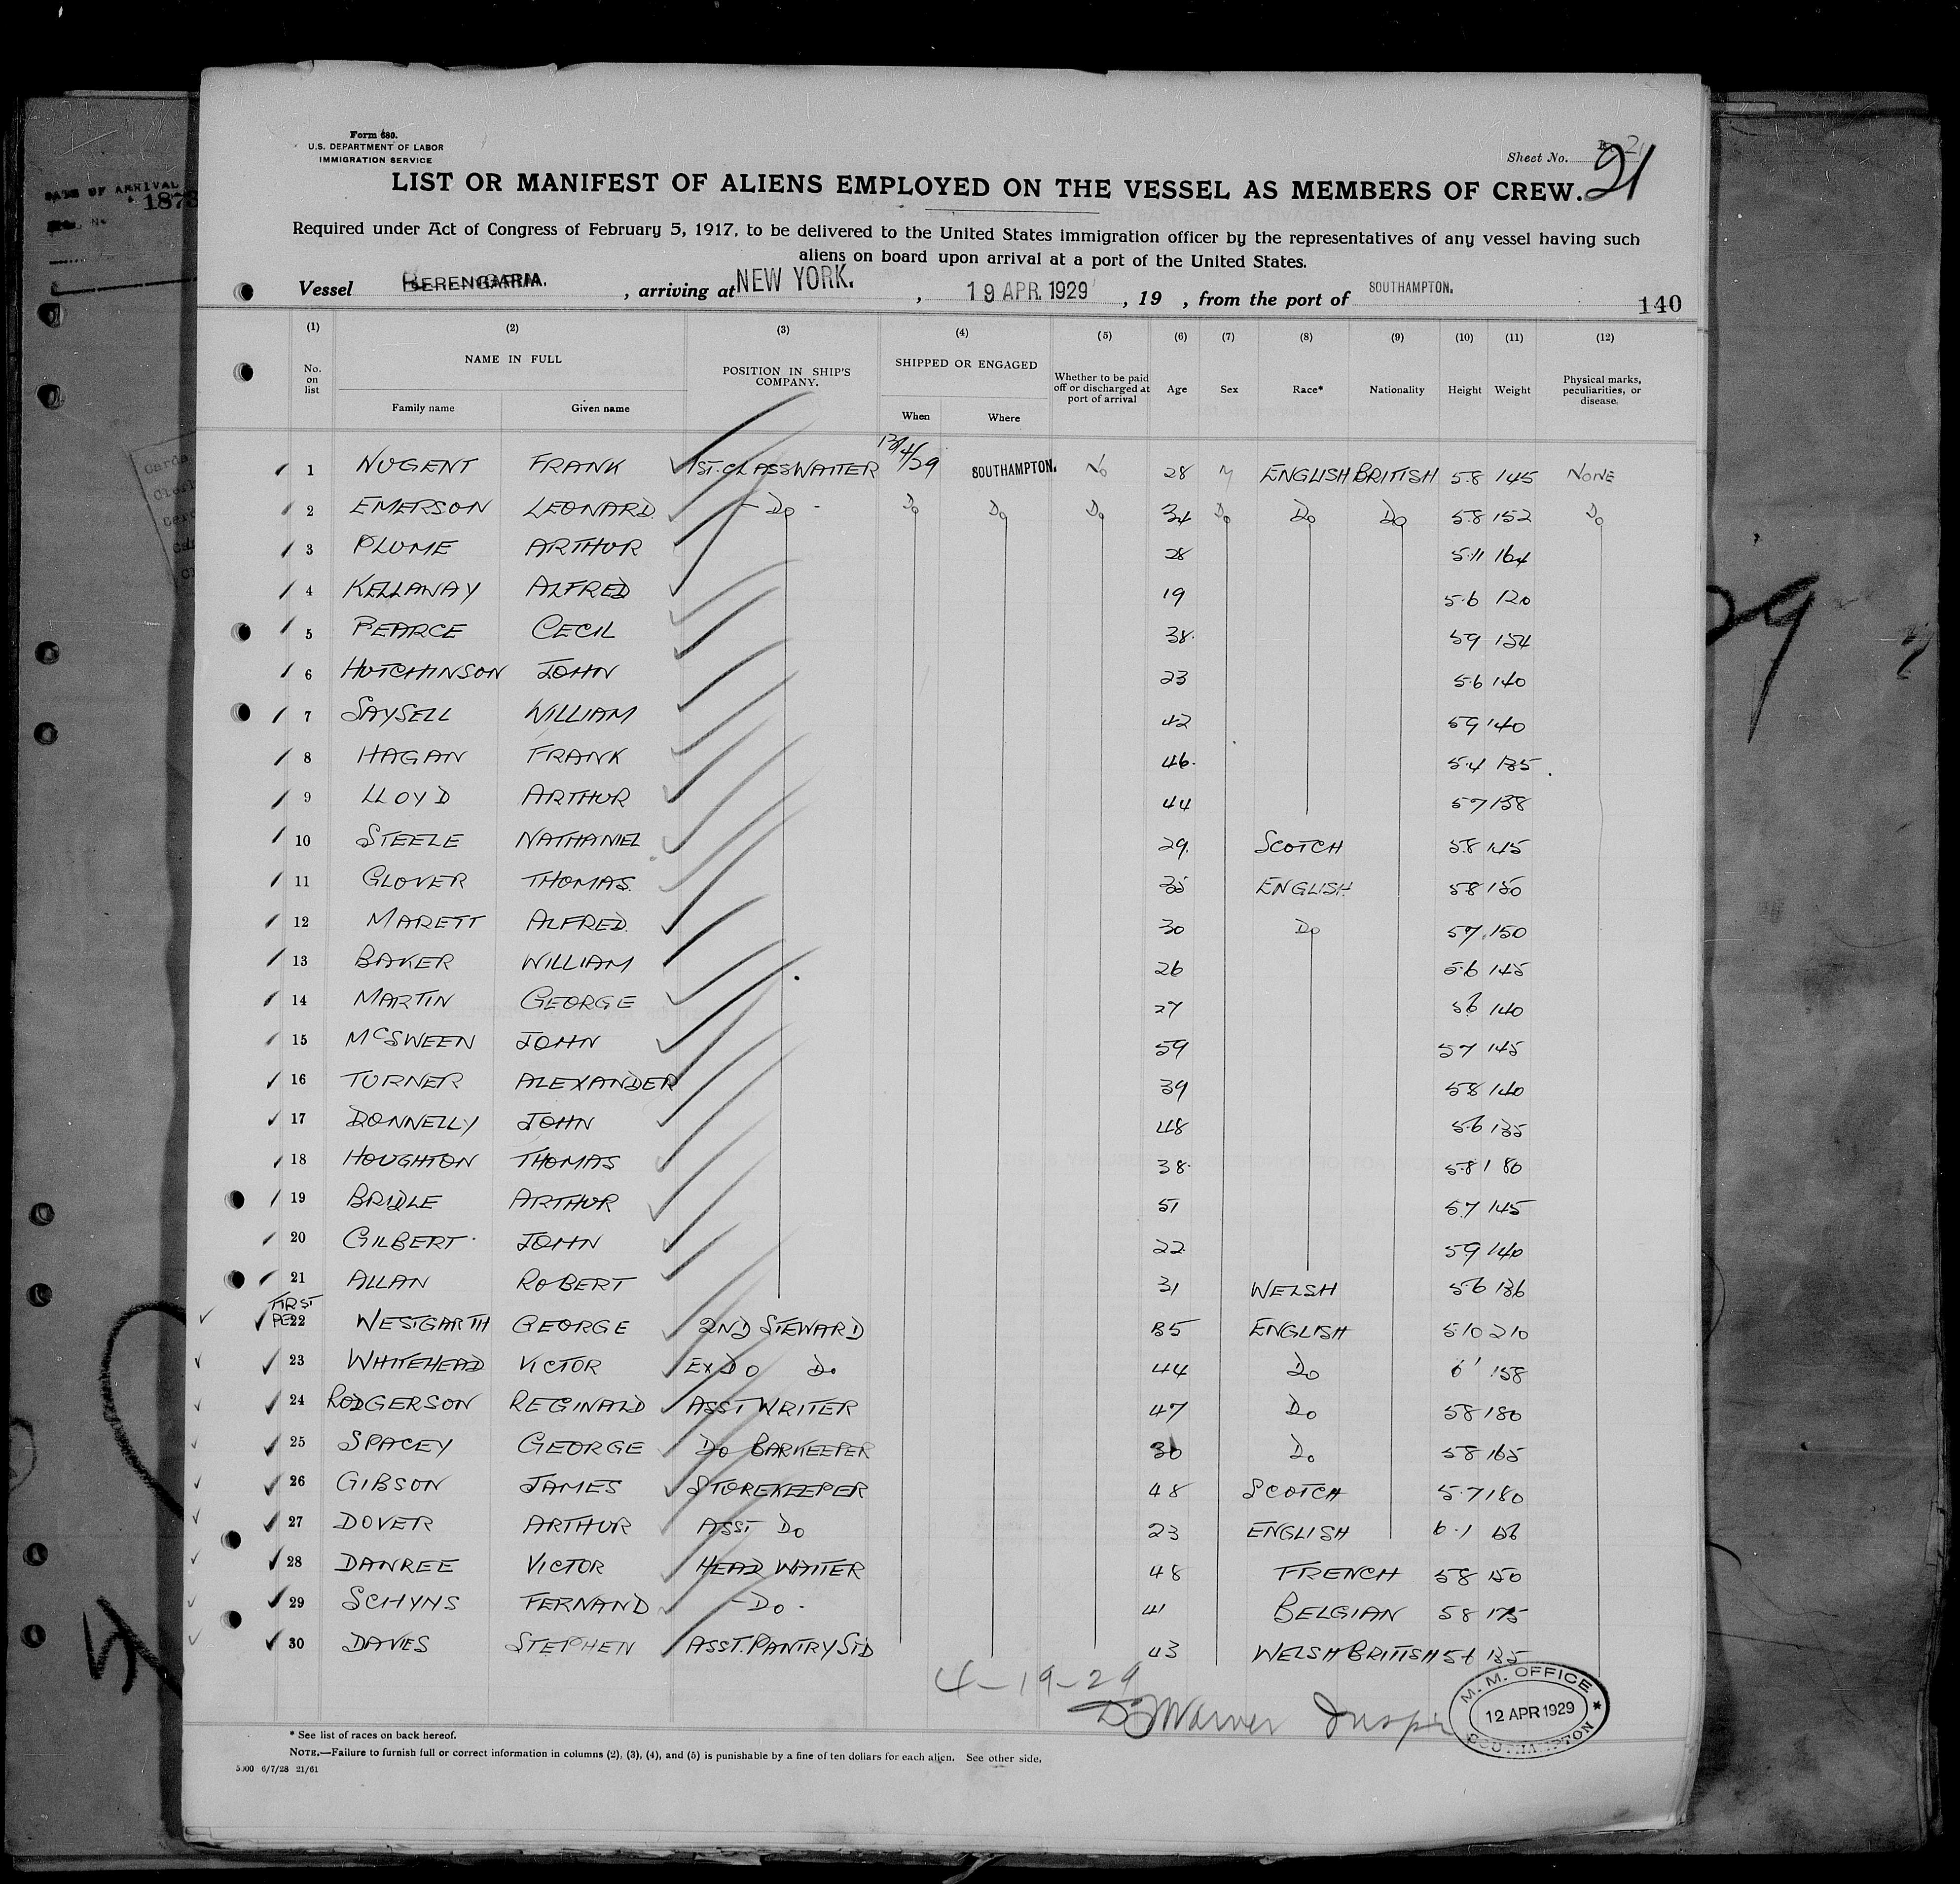 Form 680.
U.S. DEPARTMENT OF LABOR
IMMIGRATION SERVICE
Sheet No. 21
LIST OR MANIFEST OF ALIENS EMPLOYED ON THE VESSEL AS MEMBERS OF CREW.
Required under Act of Congress of February 5, 1917, to be delivered to the United States immigration officer by the representatives of any vessel having such
aliens on board upon arrival at a port of the United States.
Vessel BERENGARIA. , arriving at NEW YORK. , 19 APR. 1929 , 19 , from the port of SOUTHAMPTON.
140
(1) (2) (3) (4) (5) (6) (7) (8) (9) (10) (11) (12)
No. on list NAME IN FULL Family name Given name POSITION IN SHIP'S COMPANY. SHIPPED OR ENGAGED When Where Whether to be paid off or discharged at port of arrival Age Sex Race* Nationality Height Weight Physical marks, peculiarities, or disease.
1 NUGENT FRANK 1ST. CLASS WAITER 4/29 SOUTHAMPTON. No 28 M ENGLISH BRITISH 5.8 145 NONE
2 EMERSON LEONARD. - Do - Do Do Do 34 Do Do Do 5.8 152 Do
3 PLUME ARTHUR 28 5.11 164
4 KELLAWAY ALFRED 19 5.6 120
5 PEARCE CECIL 38. 59 154
6 HUTCHINSON JOHN 23 5.6 140
7 SAYSELL WILLIAM 42 59 140
8 HAGAN FRANK 46. 5.4 135
9 LLOYD ARTHUR 44 57 138
10 STEELE NATHANIEL 29. SCOTCH 5.8 145
11 GLOVER THOMAS. 35 ENGLISH 58 150
12 MARETT ALFRED. 30 Do 57 150
13 BAKER WILLIAM 26 5.6 145
14 MARTIN GEORGE 27 56 140
15 McSWEEN JOHN 59 57 145
16 TURNER ALEXANDER 39 58 140
17 DONNELLY JOHN 48 5.6 135
18 HOUGHTON THOMAS 38. 5.8 180
19 BRIDLE ARTHUR 51 5.7 145
20 GILBERT JOHN 22 59 140
21 ALLAN ROBERT 31 WELSH 56 136
FIRST
22 WESTGARTH GEORGE 2ND STEWARD 35 ENGLISH 510 210
23 WHITEHEAD VICTOR EX Do Do 44 Do 6' 158
24 RODGERSON REGINALD ASST WRITER 47 Do 58 180
25 SPACEY GEORGE Do BARKEEPER 30 Do 58 165
26 GIBSON JAMES STOREKEEPER 48 SCOTCH 5.7 180
27 DOVER ARTHUR ASST Do 23 ENGLISH 6.1
28 DANREE VICTOR HEAD WAITER 48 FRENCH 58 150
29 SCHYNS FERNAND - Do - 41 BELGIAN 58 175
30 DAVIES STEPHEN ASST. PANTRY STD 43 WELSH BRITISH 56 135
4-19-29
Warner Inspr
M. M. OFFICE
12 APR 1929
SOUTHAMPTON
* See list of races on back hereof.
NOTE.—Failure to furnish full or correct information in columns (2), (3), (4), and (5) is punishable by a fine of ten dollars for each alien. See other side.
5000 6/7/28 21/61
DATE OF ARRIVAL
1873